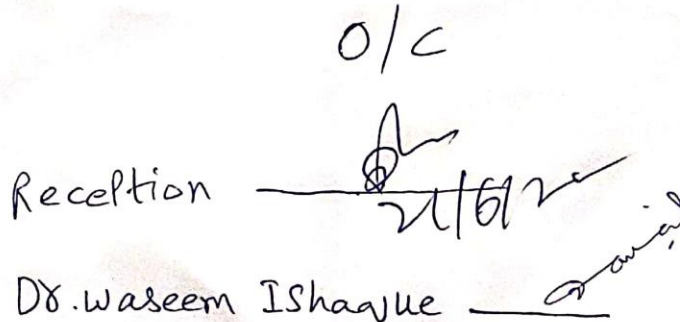 O/C
Reception
21/6/2
Dr. Waseem Ishaque